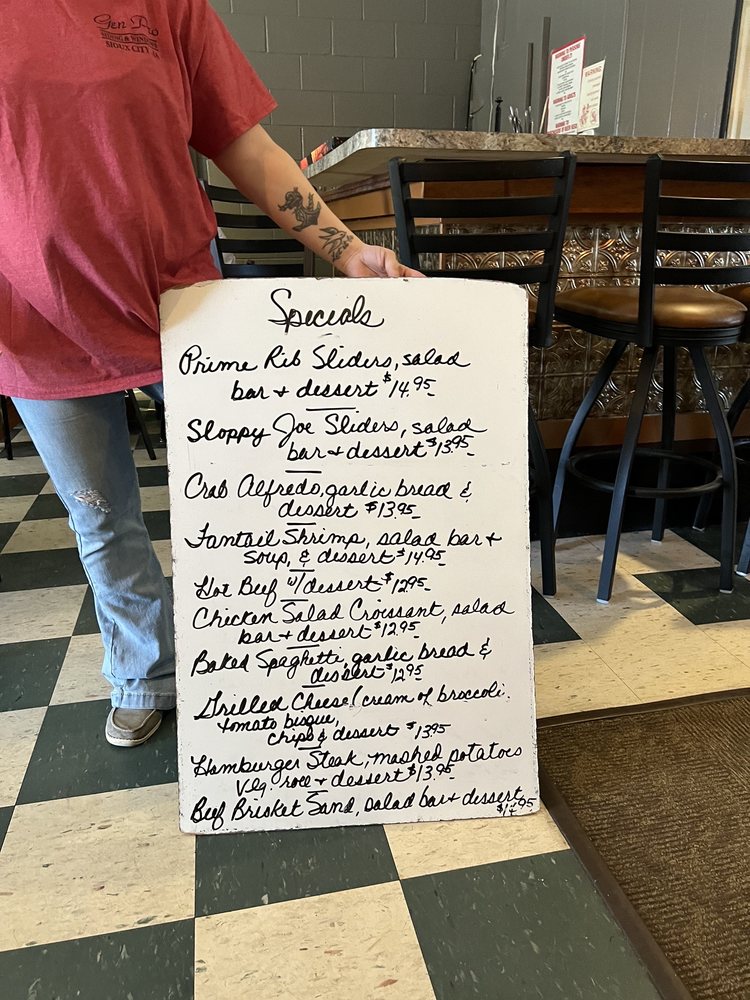 Gen Pro
SIDING & WINDOWS
SIOUX CITY, IA
Specials
Prime Rib Sliders, salad
bar + dessert $14.95
Sloppy Joe Sliders, salad
bar + dessert $13.95
Crab Alfredo, garlic bread &
dessert $13.95
Fantail Shrimp, salad bar +
soup, & dessert $14.95
Hot Beef w/dessert $12.95
Chicken Salad Croissant, salad
bar + dessert $12.95
Baked Spaghetti, garlic bread &
dessert $12.95
Grilled Cheese/cream of broccoli.
tomato bisque,
chips & dessert $13.95
Hamburger Steak, mashed potatoes
Veg. roll + dessert $13.95
Beef Brisket Sand, salad bar + dessert
$14.95